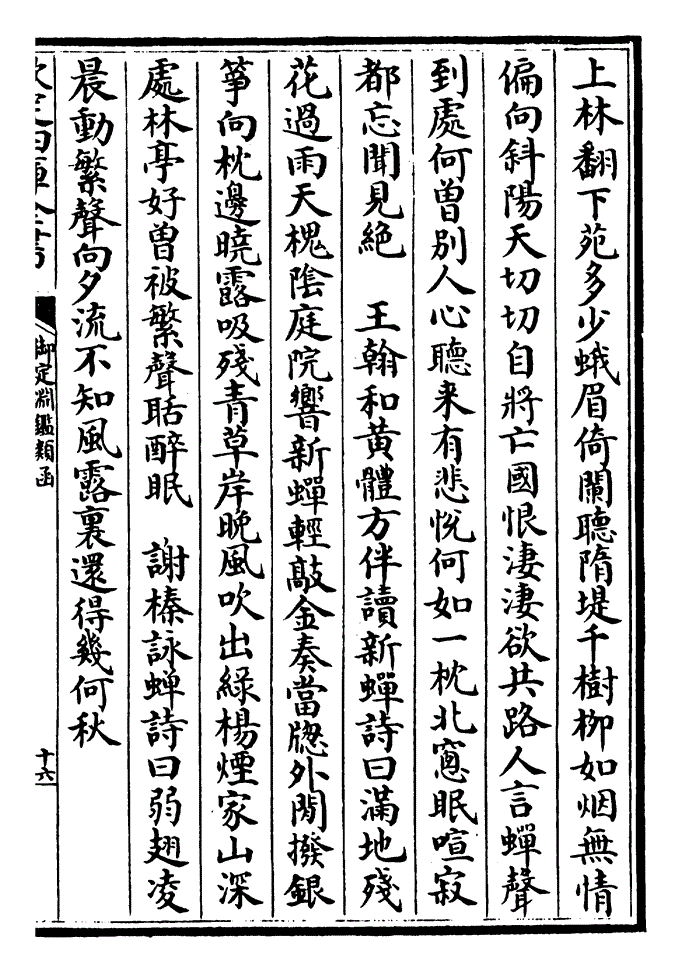 上林翻下苑多少蛾眉倚闌聽隋堤千樹栁如烟無情
偏向斜陽天切切自將亡國恨淒淒欲共路人言蟬聲
到處何曽别人心聽来有悲悅何如一枕北窻眠喧寂
都忘聞見絶　王翰和黃體方伴讀新蟬詩曰滿地殘
花過雨天槐陰庭院響新蟬輕敲金奏當牕外閒撥銀
箏向枕邊曉露吸殘青草岸晚風吹出綠楊煙家山深
處林亭好曽被繁聲聒醉眠　謝榛詠蟬詩曰弱翅凌
晨動繁聲向夕流不知風露裏還得幾何秋
欽定四庫全書
御定淵鑑類函
十六